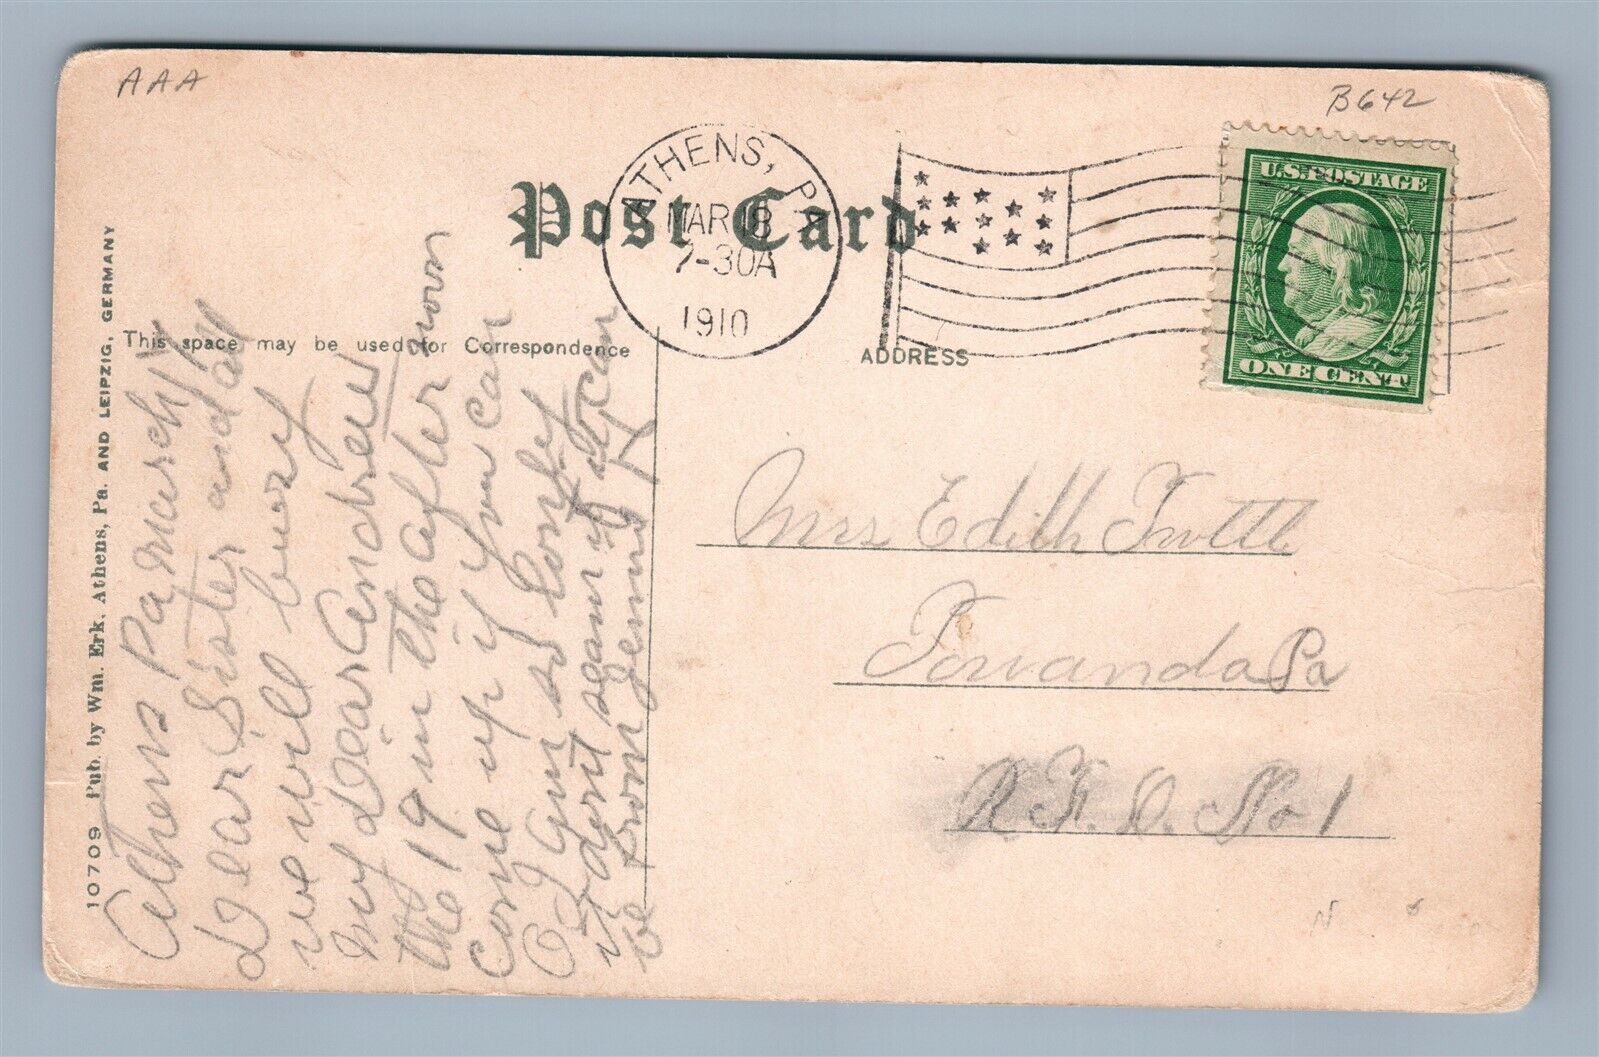 AAA
B642
Post Card
ATHENS, PA
MAR 18
7-30A
1910
U.S. POSTAGE
ONE CENT
This space may be used for Correspondence
ADDRESS
10709 Pub. by Wm. Erk, Athens, Pa. AND LEIPZIG, GERMANY
Athens Pa March 17
Dear Sister and all
we will bury
my Dear Andrew
the 19 in the after noon
come up if you can
O I am so lonly
it dont seam it can
be from Jennie
Mrs Edith
Towanda Pa
R. F. D. No 1